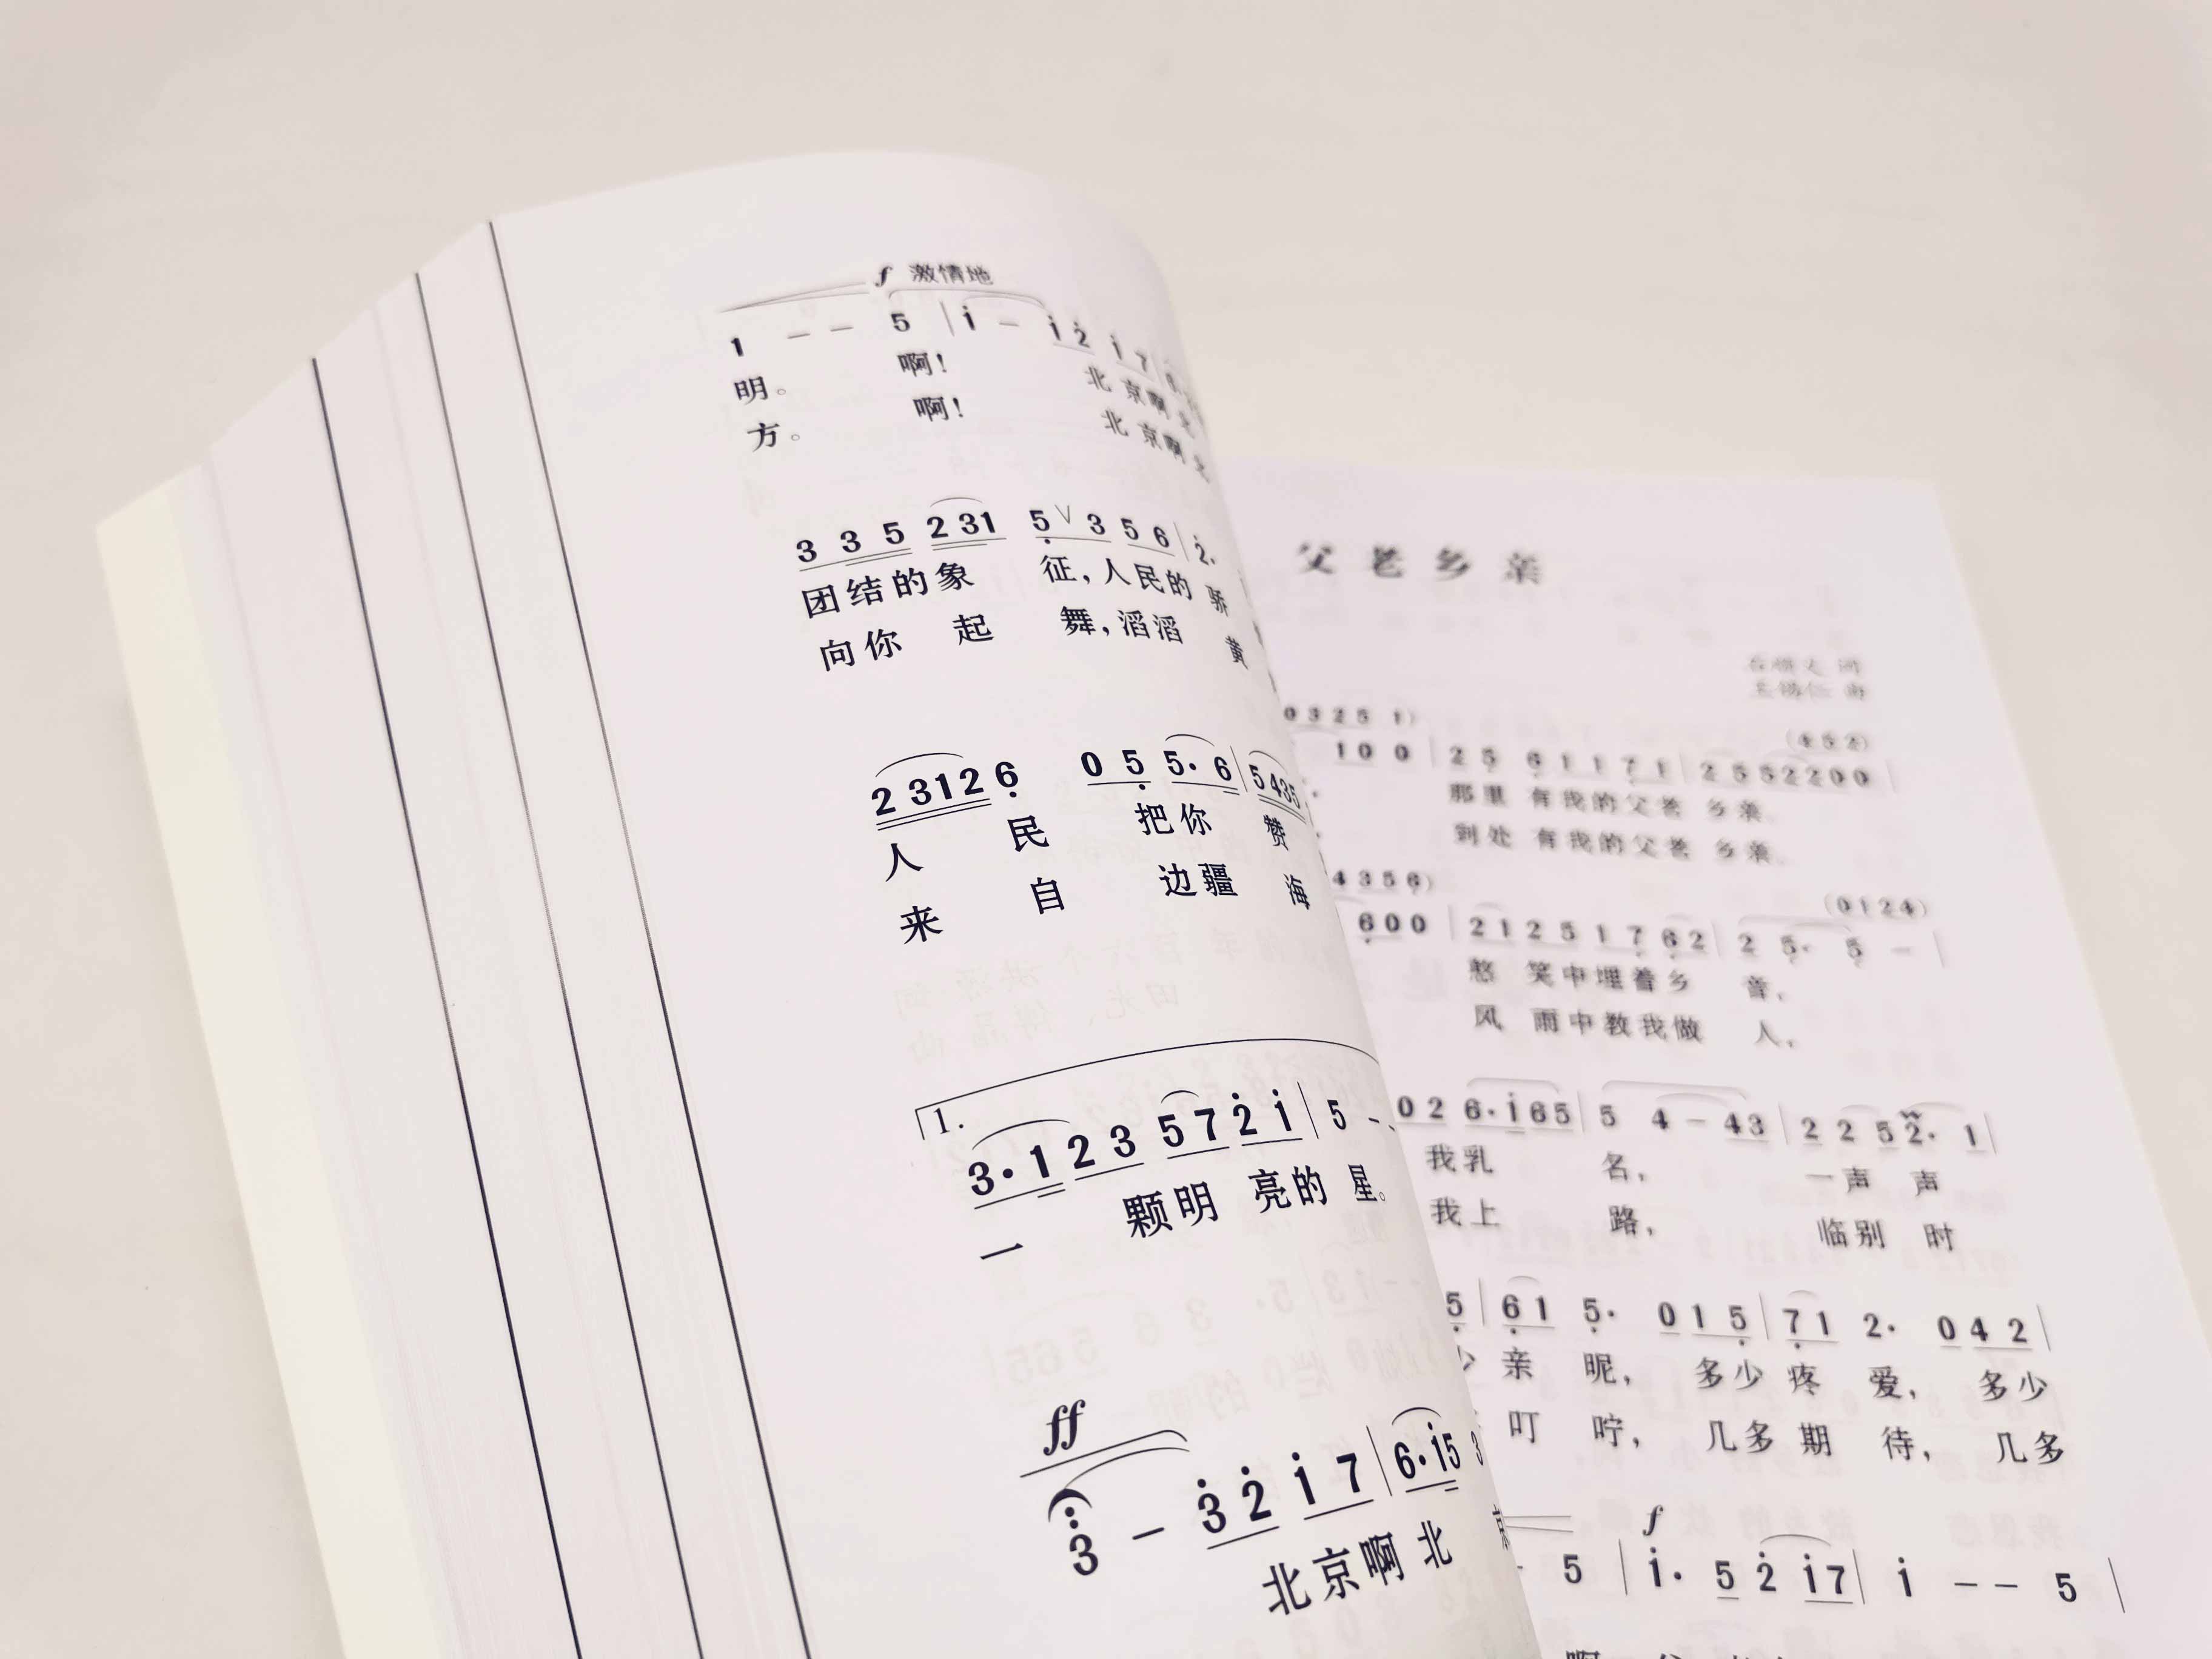 f 激情地
1 - - 5 | i - i 2 i 7
明。 啊! 北 京啊
方。 啊! 北 京啊
3 3 5 2 3 1 5 V 3 5 6 | 2.
团结的象 征,人民的 骄
向你 起 舞,滔滔 黄
2 3 1 2 6 0 5 5. 6 | 5 4 3 5
人 民 把你 赞
来 自 边疆 海
1.
3. 1 2 3 5 7 2 i | 5 - -
一 颗明 亮的 星。
ff
3 - 3 2 i 7 | 6. i 5 3
北京啊 北 京
父老乡亲
0 3 2 5 1)
(4 5 2)
1 0 0 | 2 5 6 1 1 7 1 | 2 5 5 2 2 0 0 |
那里 有我的父老 乡亲。
到处 有我的父老 乡亲。
4 3 5 6) (0 1 2 4)
6 0 0 | 2 1 2 5 1 7 6 2 | 2 5. 5 - |
憨 笑中埋着乡 音,
风 雨中教我做 人,
0 2 6. i 6 5 | 5 4 - 4 3 | 2 2 5 2. 1 |
我乳 名, 一声 声
我上 路, 临别 时
5 | 6 1 5. 0 1 5 | 7 1 2. 0 4 2 |
少 亲 昵, 多少 疼 爱, 多少
叮 咛, 几多 期 待, 几多
f
- 5 | i. 5 2 i 7 | i - - 5 |